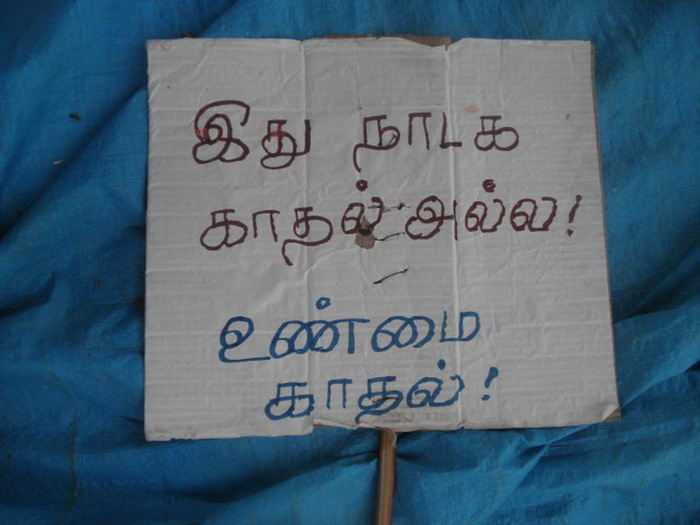 இது நாடக
காதல் அல்ல!
உண்மை
காதல்!